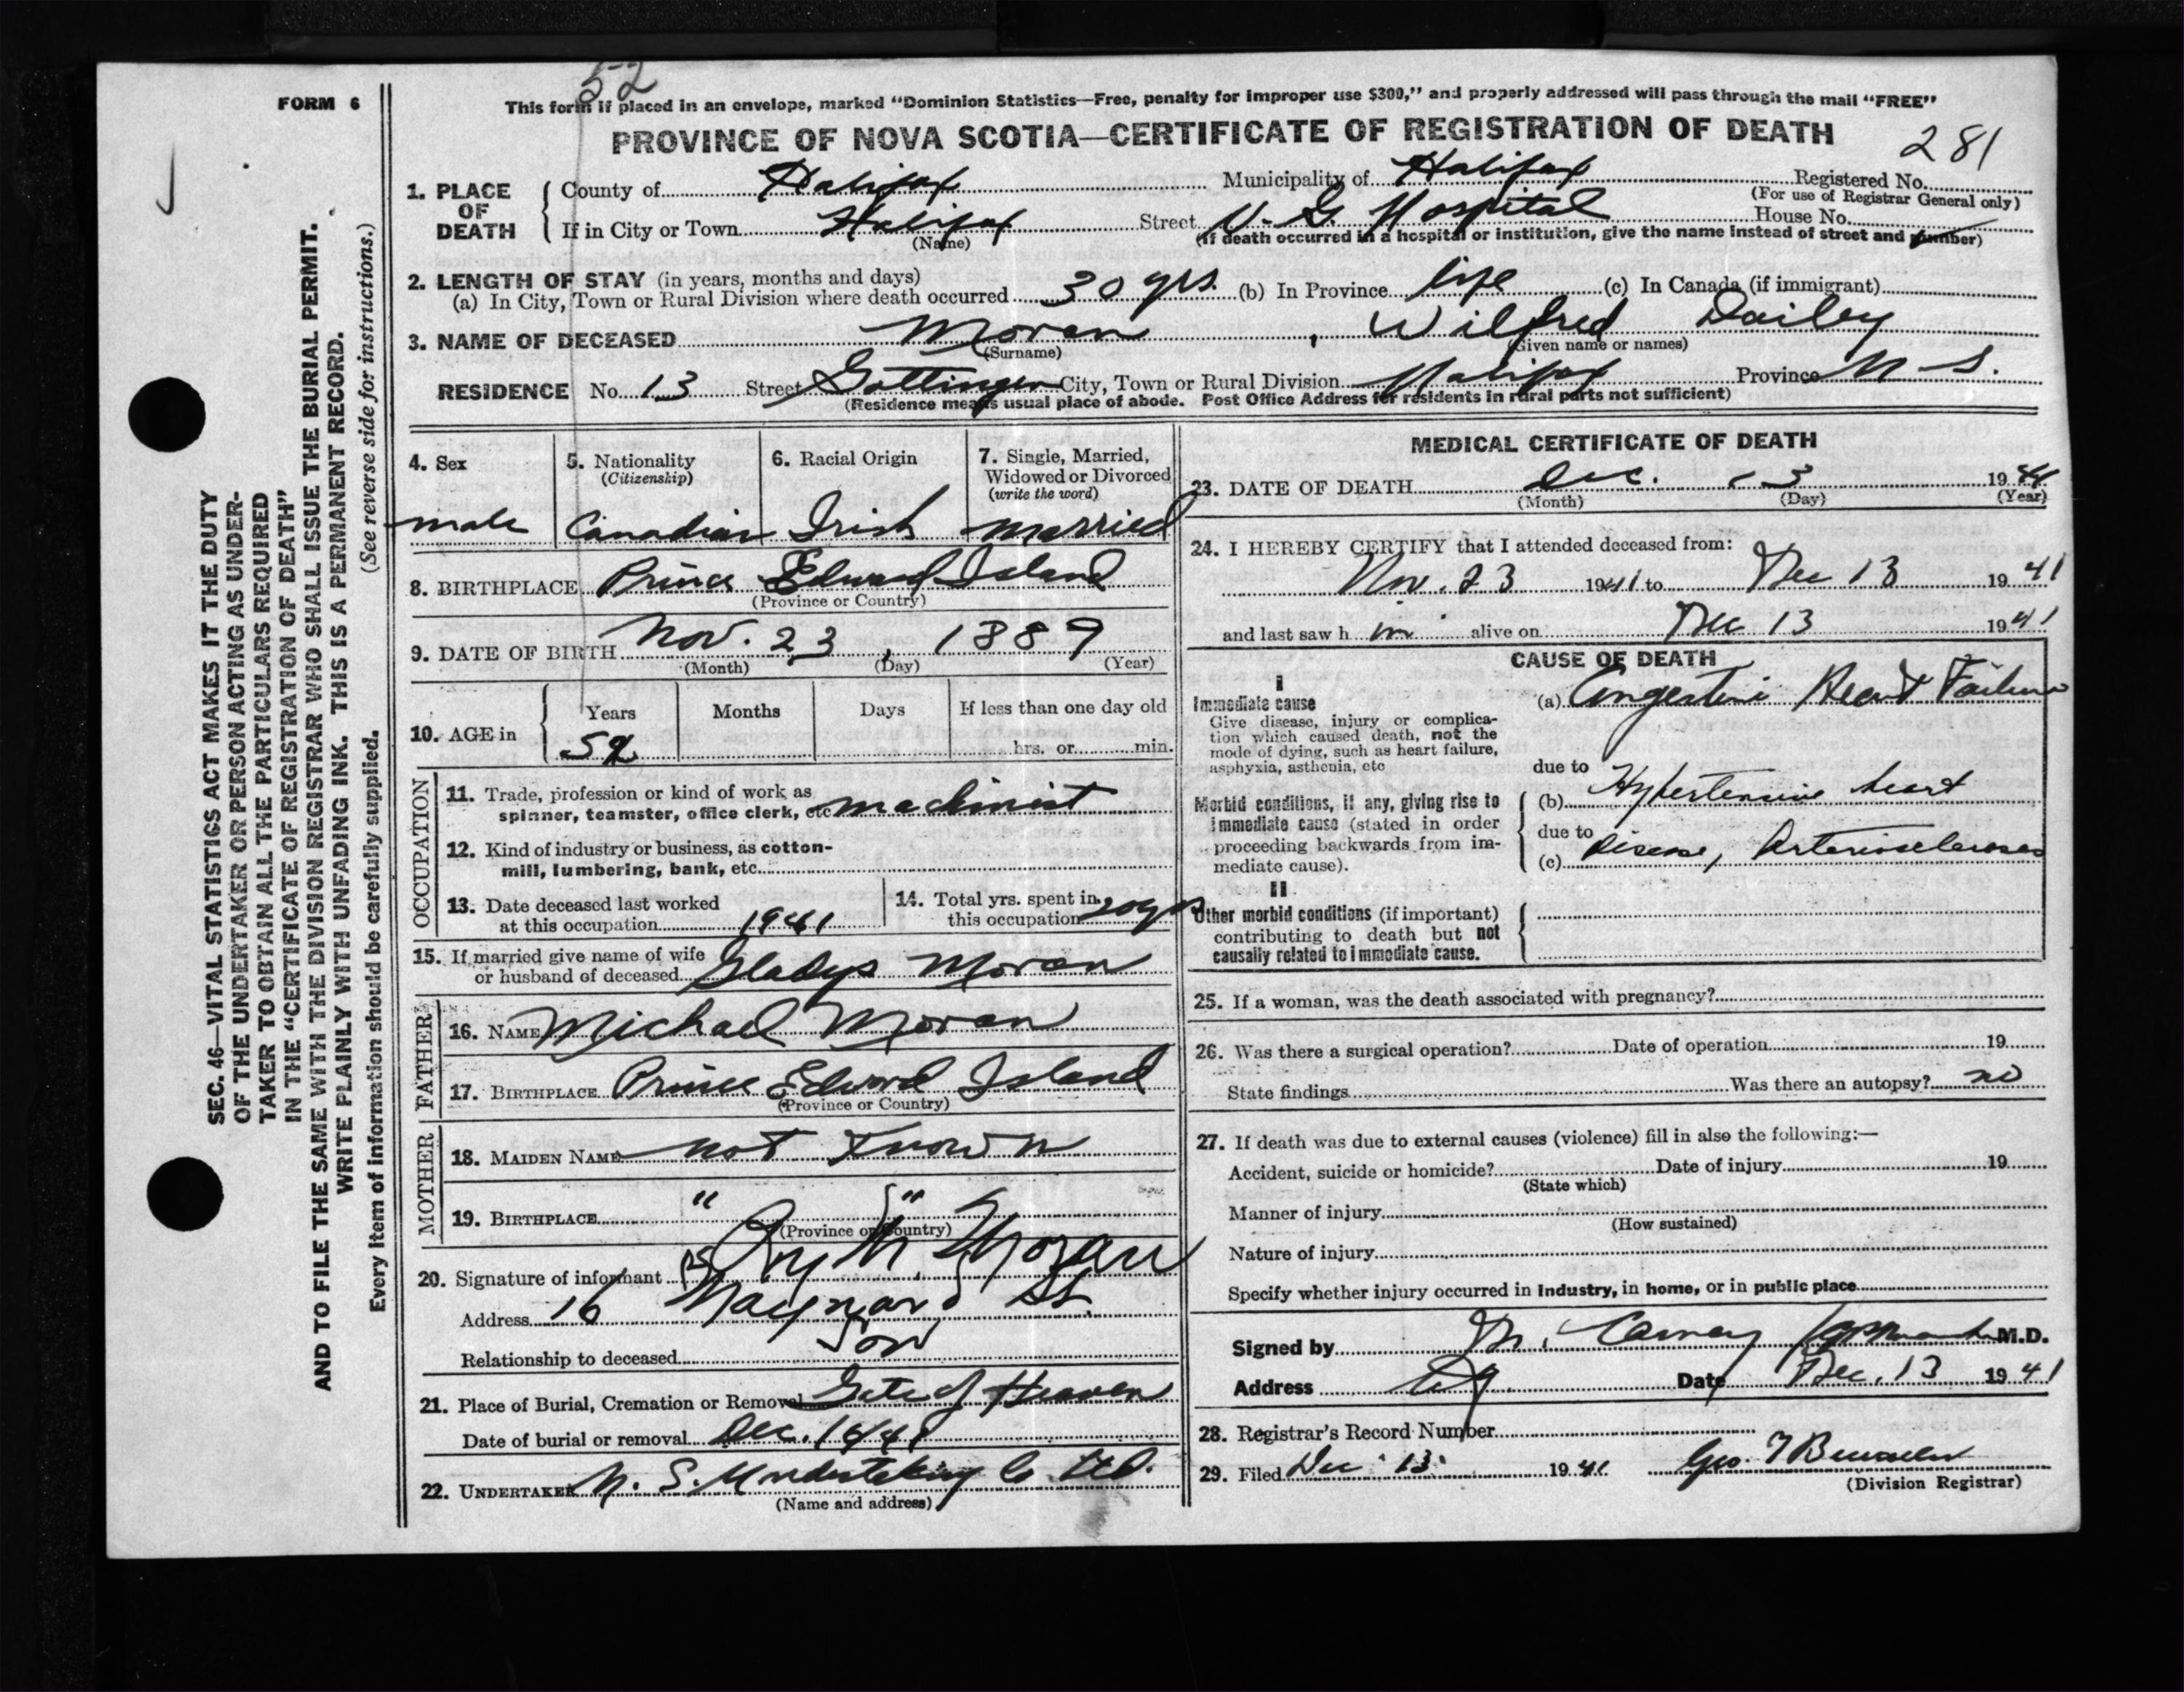 52
FORM 6
This form if placed in an envelope, marked "Dominion Statistics—Free, penalty for improper use $300," and properly addressed will pass through the mail "FREE"
PROVINCE OF NOVA SCOTIA—CERTIFICATE OF REGISTRATION OF DEATH
281
1. PLACE OF DEATH
County of Halifax Municipality of Halifax Registered No.
(For use of Registrar General only)
If in City or Town Halifax Street V. G. Hospital House No.
(Name) (If death occurred in a hospital or institution, give the name instead of street and number)
2. LENGTH OF STAY (in years, months and days)
(a) In City, Town or Rural Division where death occurred 30 yrs. (b) In Province life (c) In Canada (if immigrant)
3. NAME OF DECEASED Moran, Wilfred Dailey
(Surname) (Given name or names)
RESIDENCE No. 13 Street Gottingen City, Town or Rural Division Halifax Province N S.
(Residence means usual place of abode. Post Office Address for residents in rural parts not sufficient)
SEC. 46—VITAL STATISTICS ACT MAKES IT THE DUTY
OF THE UNDERTAKER OR PERSON ACTING AS UNDER-
TAKER TO OBTAIN ALL THE PARTICULARS REQUIRED
IN THE "CERTIFICATE OF REGISTRATION OF DEATH"
AND TO FILE THE SAME WITH THE DIVISION REGISTRAR WHO SHALL ISSUE THE BURIAL PERMIT.
WRITE PLAINLY WITH UNFADING INK. THIS IS A PERMANENT RECORD.
Every item of information should be carefully supplied. (See reverse side for instructions.)
4. Sex
male
5. Nationality
(Citizenship)
Canadian
6. Racial Origin
Irish
7. Single, Married,
Widowed or Divorced
(write the word)
married
8. BIRTHPLACE Prince Edward Island
(Province or Country)
9. DATE OF BIRTH Nov. 23, 1889
(Month) (Day) (Year)
10. AGE in
Years Months Days If less than one day old
52 hrs. or min.
OCCUPATION
11. Trade, profession or kind of work as
spinner, teamster, office clerk, etc. machinist
12. Kind of industry or business, as cotton-
mill, lumbering, bank, etc.
13. Date deceased last worked
at this occupation 1941
14. Total yrs. spent in
this occupation 20 yrs
15. If married give name of wife
or husband of deceased Gladys Moran
FATHER
16. NAME Michael Moran
17. BIRTHPLACE Prince Edward Island
(Province or Country)
MOTHER
18. MAIDEN NAME not Known
19. BIRTHPLACE " "
(Province or Country)
20. Signature of informant M. Moran
Address 16 Maynard St.
Relationship to deceased Son
21. Place of Burial, Cremation or Removal Gate of Heaven
Date of burial or removal Dec. 16/41
22. UNDERTAKER N. S. Undertaking Co Ltd.
(Name and address)
MEDICAL CERTIFICATE OF DEATH
23. DATE OF DEATH Dec. 13 1941
(Month) (Day) (Year)
24. I HEREBY CERTIFY that I attended deceased from:
Nov. 23 1941 to Dec 13 1941
and last saw h im alive on Dec 13 1941
CAUSE OF DEATH
I
Immediate cause
Give disease, injury or complica-
tion which caused death, not the
mode of dying, such as heart failure,
asphyxia, asthenia, etc
(a) Congestive Heart Failure
due to
Morbid conditions, if any, giving rise to
immediate cause (stated in order
proceeding backwards from im-
mediate cause).
(b) Hypertensive heart
due to
(c) Disease, Arteriosclerosis
II
Other morbid conditions (if important)
contributing to death but not
causally related to immediate cause.
25. If a woman, was the death associated with pregnancy?
26. Was there a surgical operation? Date of operation 19
State findings Was there an autopsy? no
27. If death was due to external causes (violence) fill in also the following:—
Accident, suicide or homicide? Date of injury 19
(State which)
Manner of injury
(How sustained)
Nature of injury
Specify whether injury occurred in Industry, in home, or in public place
Signed by M. Carney M.D.
Address Date Dec. 13 1941
28. Registrar's Record Number
29. Filed Dec 13 1941 Geo.
(Division Registrar)